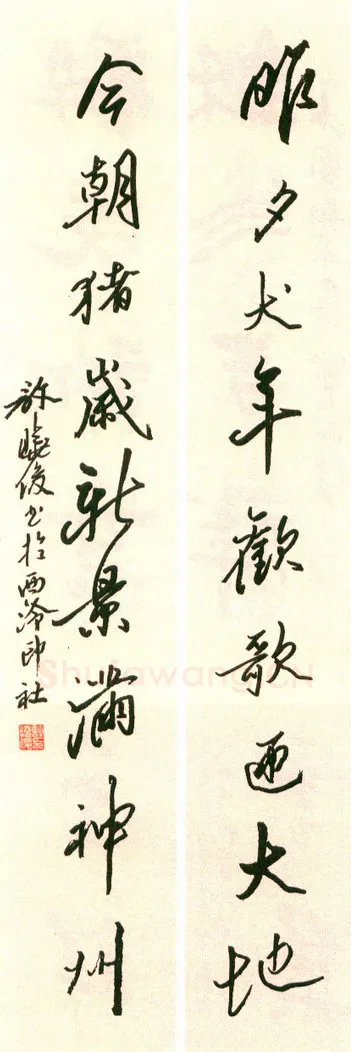 昨夕犬年歡歌迊大地
今朝猪歲新景滿神州
許曉俊书於西泠印社
Shufawang.CN